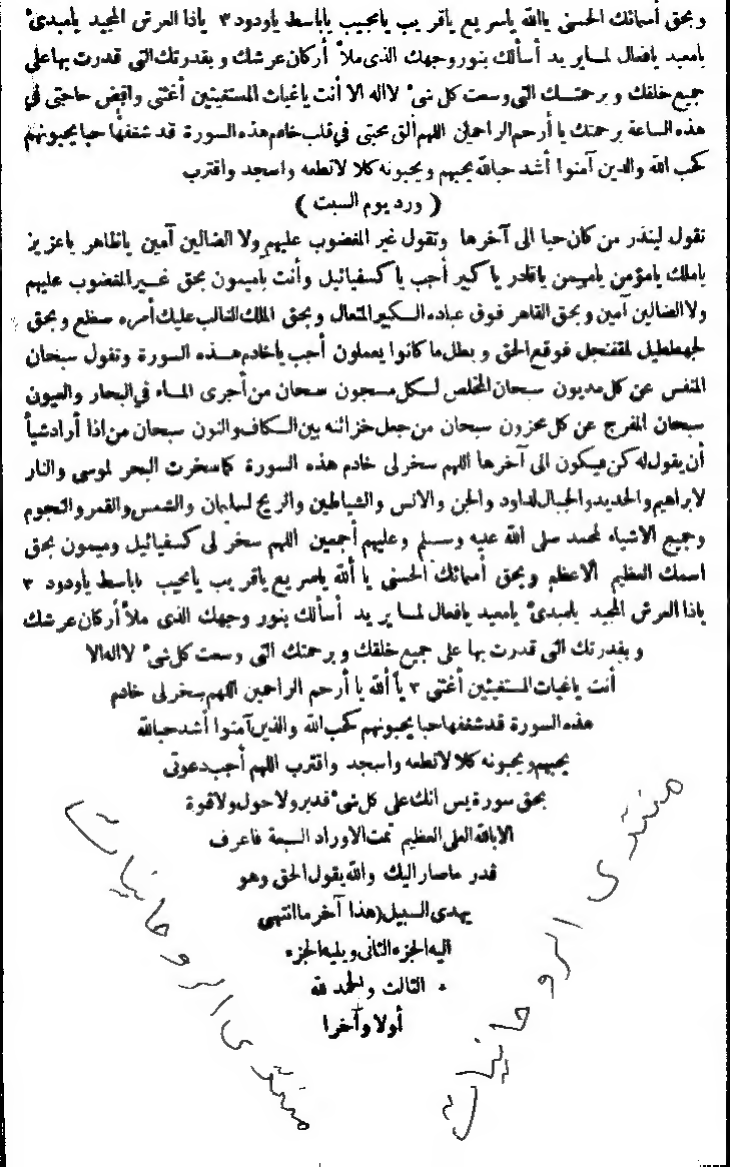 وبحق أسمائك الحسنى ياألله ياسريع ياقريب يامجيب ياباسط ياودود ٣ ياذا العرش المجيد يامبدئ
يامعيد يافعال لما يريد أسألك بنور وجهك الذى ملأ أركان عرشك وبقدرتك التى قدرت بها على
جميع خلقك وبرحمتك التى وسعت كل شئ لااله الا أنت ياغياث المستغيثين أغثنى واقض حاجتى في
هذه الساعة برحمتك يا أرحم الراحمين اللهم ألق محبتى في قلب خادم هذه السورة قد شغفها حبا يحبونهم
كحب الله والذين آمنوا أشد حبا لله يحبهم ويحبونه كلا لاتطعه واسجد واقترب
( ورد يوم السبت )
تقول لينذر من كان حيا الى آخرها وتقول غير المغضوب عليهم ولا الضالين آمين ياظاهر ياعزيز
ياملك يامؤمن يامهيمن ياقادر ياكبير أجب يا كسفيائيل وأنت ياميمون بحق غير المغضوب عليهم
ولا الضالين آمين وبحق القاهر فوق عباده الكبير المتعال وبحق الملك الغالب عليك أمره سقطع وبحق
لجهططيل لمقفنجل فوقع الحق وبطل ما كانوا يعملون أجب ياخادم هذه السورة وتقول سبحان
المنفس عن كل مديون سبحان المخلص لكل مسجون سبحان من أجرى الماء في البحار والعيون
سبحان المفرج عن كل محزون سبحان من جعل خزائنه بين الكاف والنون سبحان من اذا أراد شيأ
أن يقول له كن فيكون الى آخرها اللهم سخرلى خادم هذه السورة كما سخرت البحر لموسى والنار
لابراهيم والحديد والجبال لداود والجن والانس والشياطين والريح لسليمان والشمس والقمر والنجوم
وجميع الاشياء لمحمد صلى الله عليه وسلم وعليهم أجمعين اللهم سخر لى كسفيائيل وميمون بحق
اسمك العظيم الاعظم وبحق أسمائك الحسنى يا ألله ياسريع ياقريب يامجيب ياباسط ياودود ٣
ياذا العرش المجيد يامبدئ يامعيد يافعال لما يريد أسألك بنور وجهك الذى ملأ أركان عرشك
وبقدرتك التى قدرت بها على جميع خلقك وبرحمتك التى وسعت كل شئ لااله الا
أنت ياغياث المستغيثين أغثنى ٣ يا ألله يا أرحم الراحمين اللهم سخرلى خادم
هذه السورة قد شغفها حبا يحبونهم كحب الله والذين آمنوا أشد حبا لله
يحبهم ويحبونه كلا لاتطعه واسجد واقترب اللهم أجب دعوتى
بحق سورة يس انك على كل شئ قدير ولا حول ولاقوة
الا بالله العلى العظيم تمت الاوراد السبعة فاعرف
قدر ماصار اليك والله يقول الحق وهو
يهدى السبيل (هذا آخر ما انتهى
اليه الجزء الثانى ويليه الجزء
الثالث والحمد لله
أولا وآخرا
منتدى الروحانيات
منتدى الروحانيات